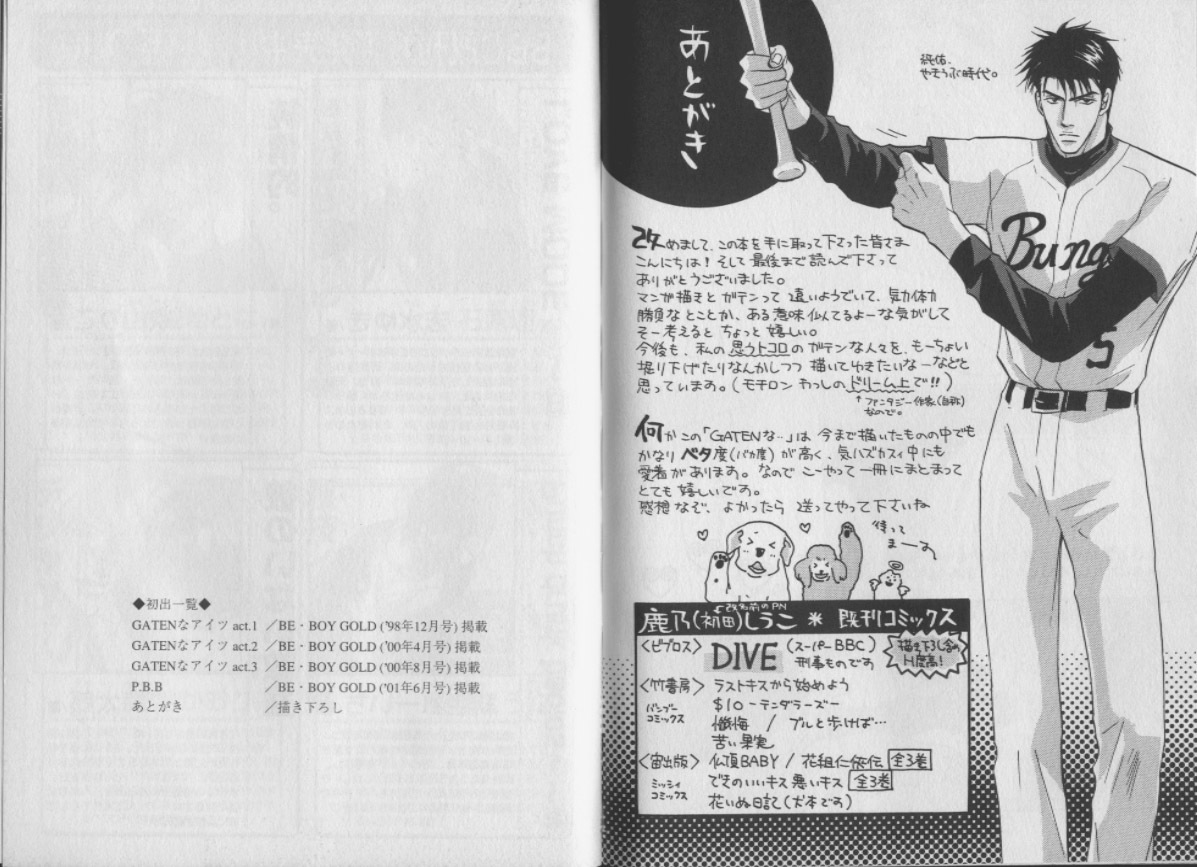 あとがき
純佑、
やきゅうぶ時代。
Bung
5
改めまして、この本を手に取って下さった皆さま
こんにちは！そして最後まで読んで下さって
ありがとうございました。
マンガ描きとガテンって遠いようでいて、気力体力
勝負なとことか、ある意味似てるよーな気がして
そー考えるとちょっと嬉しい。
今後も、私の思うトコロのガテンな人々を、もーちょい
掘り下げたりなんかしつつ描いてゆきたいなーなどと
思っています。(モチロンわっしのドリーム上で!!)
↑ファンタジー作家(自称)
なので。
何かこの「GATENな‥」は今まで描いたものの中でも
かなりベタ度(バカ度)が高く、気ハズカスィ中にも
愛着があります。なのでこーやって一冊にまとまって
とても嬉しいです。
感想など、よかったら送ってやって下さいね
待って
まーす
改名前のPN
鹿乃(初田)しうこ＊既刊コミックス
〈ビブロス〉DIVE(スーパーBBC)
刑事ものです
描き下ろし含め
H度高！
〈竹書房〉ラストキスから始めよう
バンブー
コミックス
$10－テンダラーズー
懺悔 / ブルと歩けば…
苦い果実
〈宙出版〉仏頂BABY / 花組仁依伝 全3巻
ミッシィ
コミックス
できのいいキス悪いキス 全3巻
花いぬ日記(犬本です)
◆初出一覧◆
GATENなアイツ act.1 ／BE・BOY GOLD ('98年12月号) 掲載
GATENなアイツ act.2 ／BE・BOY GOLD ('00年4月号) 掲載
GATENなアイツ act.3 ／BE・BOY GOLD ('00年8月号) 掲載
P.B.B ／BE・BOY GOLD ('01年6月号) 掲載
あとがき ／描き下ろし